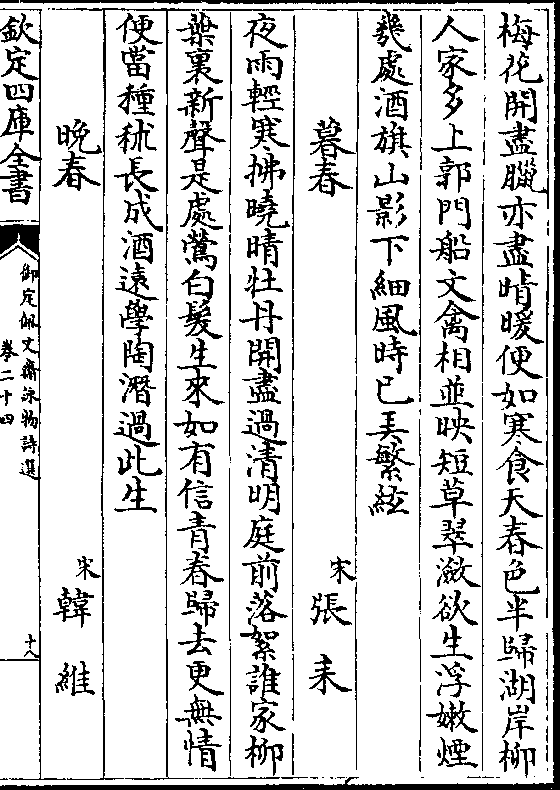 梅花開盡臘亦盡晴暖便如寒食天春色半歸湖岸柳
人家多上郭門船文禽相並映短草翠瀲欲生浮嫩煙
幾處酒旗山影下細風時已弄繁絃
暮春 宋 張耒
夜雨輕寒拂曉晴牡丹開盡過清明庭前落絮誰家柳
葉裏新聲是處鶯白髮生來如有信青春歸去更無情
便當種秫長成酒遠學陶潛過此生
晚春 宋 韓維
欽定四庫全書
御定佩文齋詠物詩選
卷二十四
十八